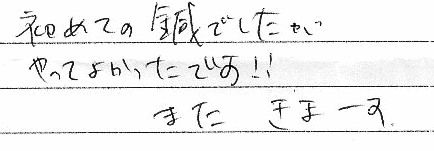 初めての鍼でしたが
やってよかったです!!
また きまーす.